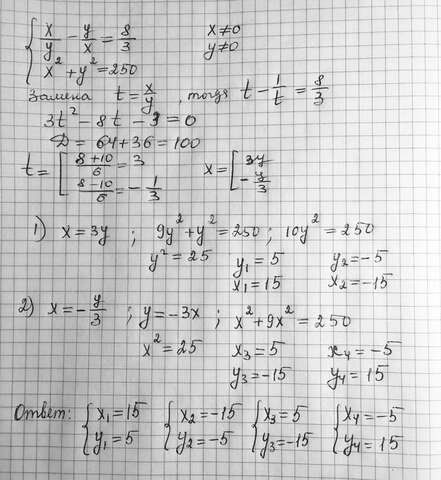 { x/y - y/x = 8/3    x≠0
x² + y² = 250    y≠0
Замена t = x/y, тогда t - 1/t = 8/3
3t² - 8t - 3 = 0
D = 64 + 36 = 100
t = [ (8+10)/6 = 3    x = [ 3y
(8-10)/6 = -1/3    -y/3
1) x = 3y ; 9y² + y² = 250 ; 10y² = 250
y² = 25    y₁ = 5    y₂ = -5
x₁ = 15    x₂ = -15
2) x = -y/3 ; y = -3x ; x² + 9x² = 250
x² = 25    x₃ = 5    x₄ = -5
y₃ = -15    y₄ = 15
Ответ: { x₁ = 15    { x₂ = -15    { x₃ = 5    { x₄ = -5
y₁ = 5    y₂ = -5    y₃ = -15    y₄ = 15